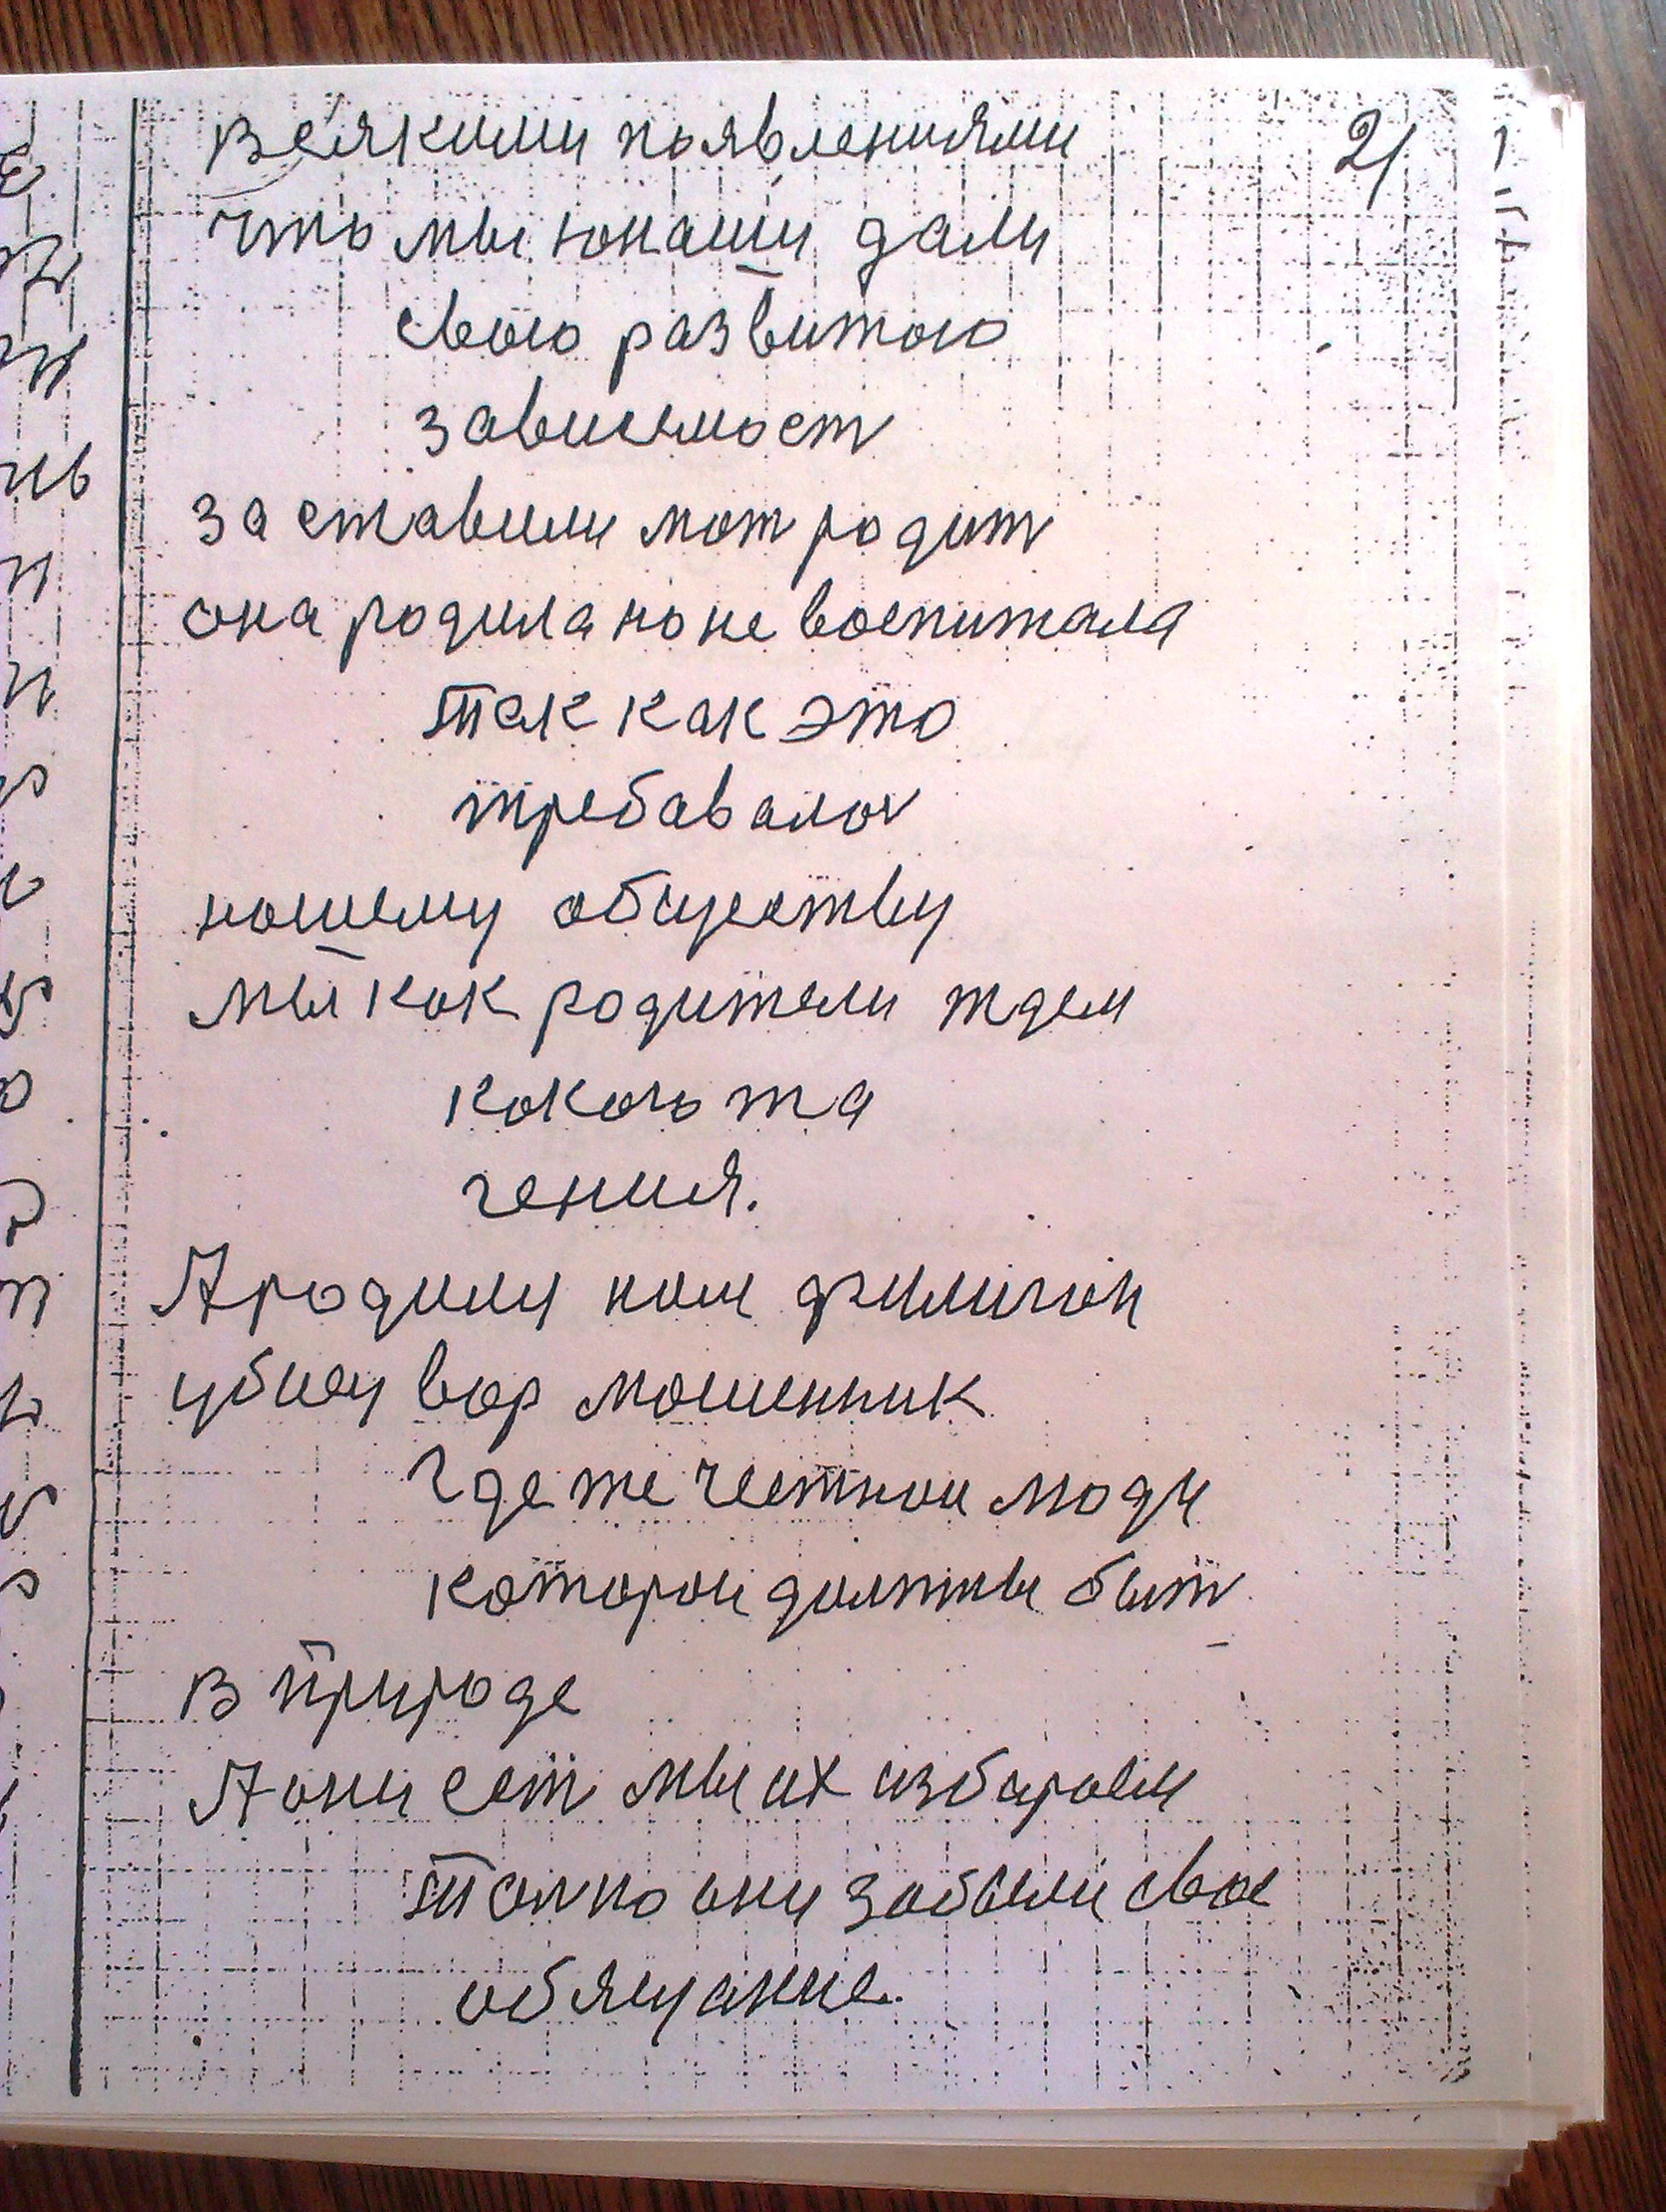 Всякими появлениями 21
что мы юнаши дали
свою развитою
зависемост
заставили мат родит
она родила но не воспитала
так как это
требавалос
нашему обществу
мы как родители ждем
какогь та
гения.
А родили нам
убиец вор мошенник
Где же честнои люди
которои должны быт
в природе
А они ест мы их избираем
Толко они забыли свое
обящание.